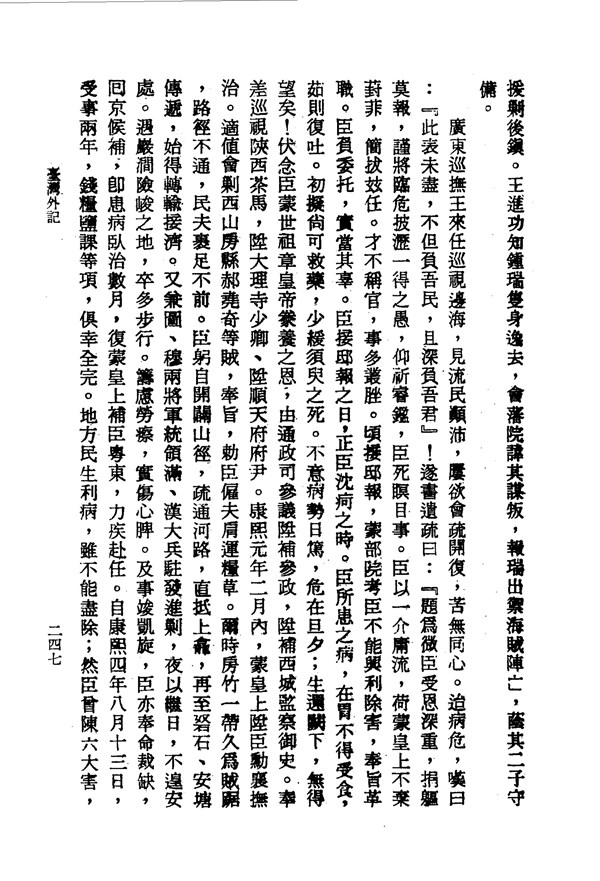 援剿後鎮。王進功知鍾瑞隻身逸去，會藩院諱其謀叛，報瑞出禦海賊陣亡，蔭其二子守
備。
廣東巡撫王來任巡視邊海，見流民顛沛，屢欲會疏開復，苦無同心。迨病危，嘆曰
：『此表未盡，不但負吾民，且深負吾君』！遂書遺疏曰：『題爲微臣受恩深重，捐軀
莫報，謹將臨危披瀝一得之愚，仰祈睿鑑，臣死瞑目事。臣以一介庸流，荷蒙皇上不棄
葑菲，簡拔效任。才不稱官，事多叢脞。頃接邸報，蒙部院考臣不能興利除害，奉旨革
職。臣負委托，實當其辜。臣接邸報之日，正臣沈疴之時。臣所患之病，在胃不得受食，
茹則復吐。初擬尚可救藥，少緩須臾之死。不意病勢日篤，危在旦夕；生還闕下，無得
望矣！伏念臣蒙世祖章皇帝豢養之恩，由通政司參議陞補參政，陞補西城監察御史。奉
差巡視陝西茶馬，陞大理寺少卿、陞順天府府尹。康熙元年二月內，蒙皇上陞臣勳襄撫
治。適値會剿西山房縣郝堯奇等賊，奉旨，勅臣僱夫肩運糧草。爾時房竹一帶久爲賊踞
，路徑不通，民夫裹足不前。臣躬自開闢山徑，疏通河路，直抵上龕，再至碧石、安塘
傳遞，始得轉輸接濟。又兼圖、穆兩將軍統領滿、漢大兵駐發進剿，夜以繼日，不遑安
處。遇巖澗險峻之地，卒多步行。籌慮勞瘵，實傷心脾。及事竣凱旋，臣亦奉命裁缺，
囘京候補，卽患病臥治數月，復蒙皇上補臣粵東，力疾赴任。自康熙四年八月十三日，
受事兩年，錢糧鹽課等項，俱幸全完。地方民生利病，雖不能盡除；然臣曾陳六大害，
臺灣外記
二四七